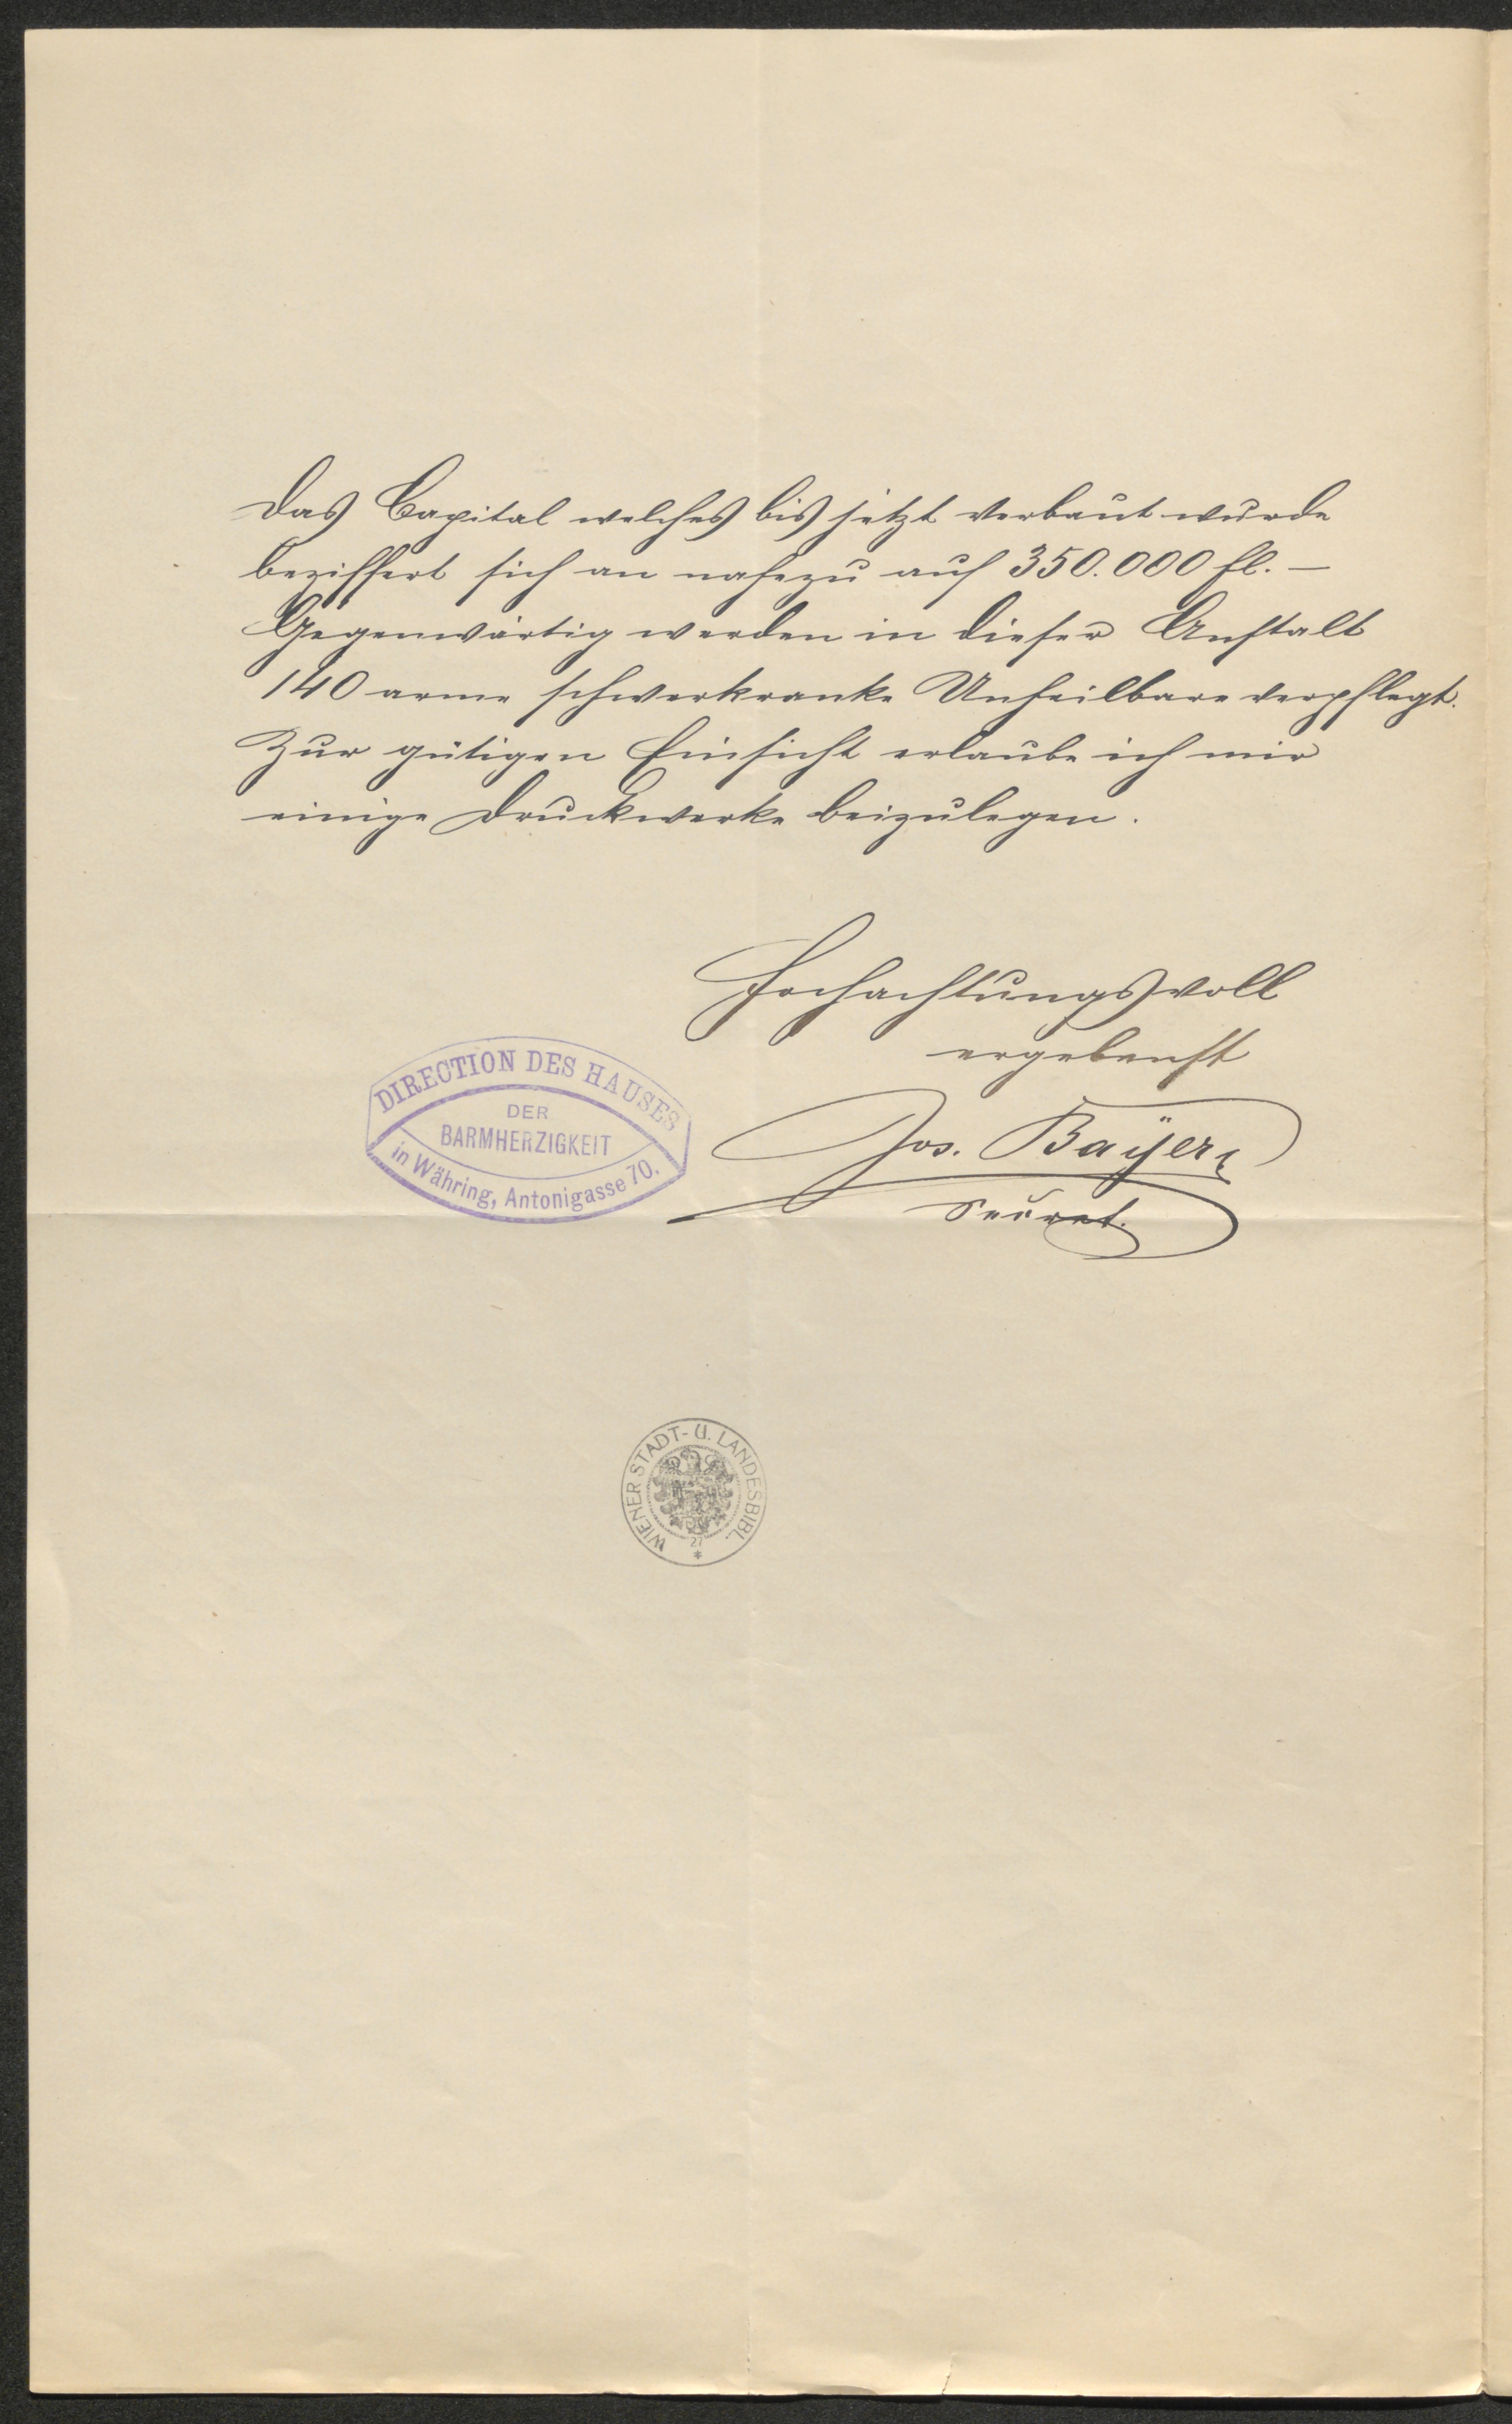 Das Capital welches bis jetzt verbaut wurde
beziffert sich an nahezu auf 350.000 fl. —
Gegenwärtig werden in dieser Anstalt
140 arme schwerkranke Unheilbare verpflegt.
Zur gütigen Einsicht erlaube ich mir
einige Druckwerke beizulegen.
Hochachtungsvoll
ergebenst
Jos. Bayer
Secret.
DIRECTION DES HAUSES
DER
BARMHERZIGKEIT
in Währing, Antonigasse 70.
WIENER STADT- U. LANDESBIBL.
27